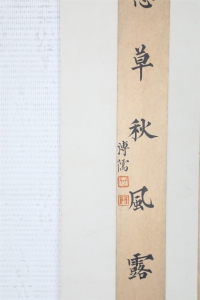 草秋風露
溥儒